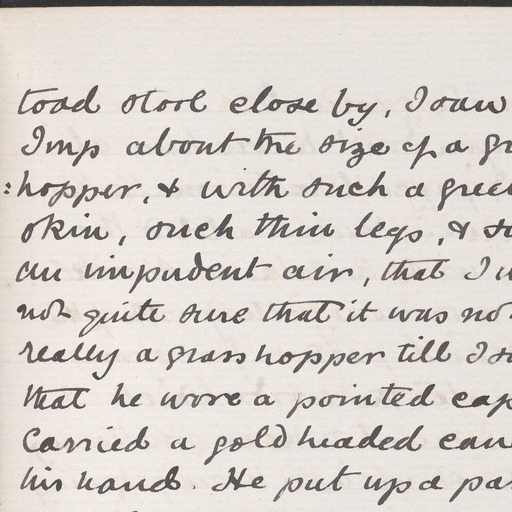 toad stool close by, I saw
Imp about the size of a gr
:hopper, & with such a gree
skin, such thin legs, & s
an impudent air, that I w
not quite sure that it was no
really a grasshopper till I s
that he wore a pointed cap
carried a gold headed can
his hand. He put up a pa